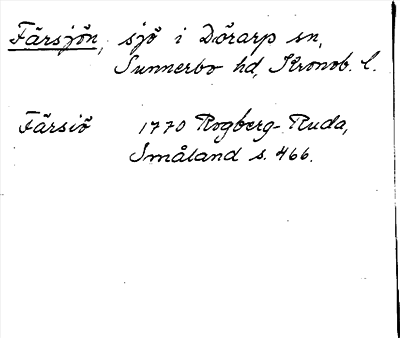 Färsjön, sjö i Dörarp sn,
Sunnerbo hd, Kronob. l.
Färsiö 1770 Rogberg-Ruda,
Småland s. 466.